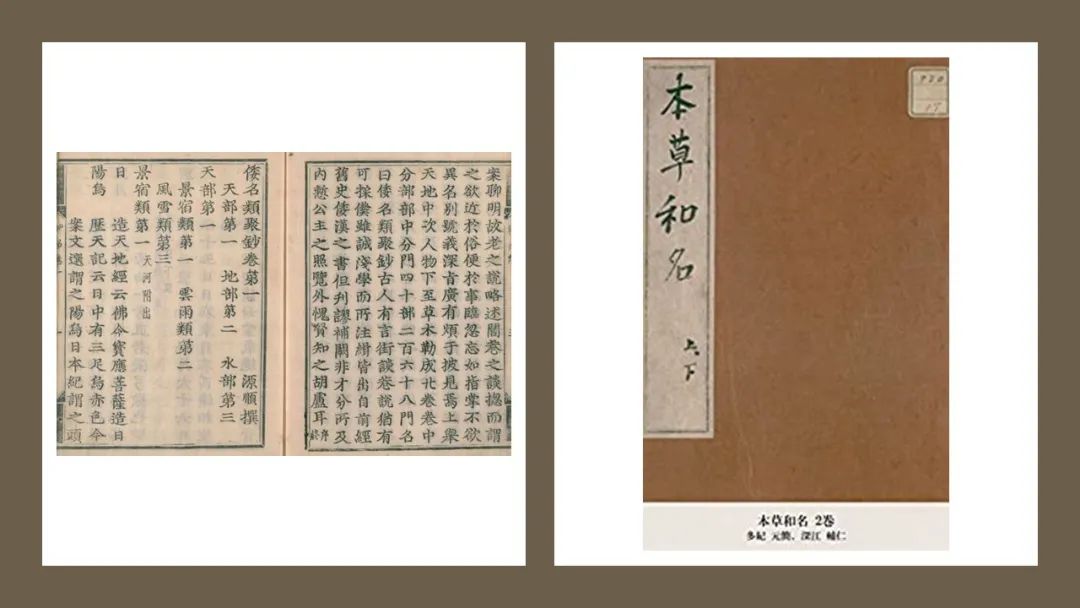 案聊明故老之說略述閭巷之談摠而謂
之欲近於俗便於事臨忽忘如指掌不欲
異名別號義深旨廣有煩于披見焉上舉
天地中次人物下至草木勒成廿卷卷中
分部部中分門四十部二百六十八門名
曰倭名類聚鈔古人有言街談巷說猶有
可採僕雖誠淺學而所注緝皆出自前經
舊史倭漢之書但刊謬補闕非才分所及
內慙公主之照覽外愧賢知之胡盧耳 序終
倭名類聚鈔卷第一 源順撰
天部第一 地部第二 水部第三
天部第一
景宿類第一 雲雨類第二
風雪類第三
景宿類第一 天河附出
日 造天地經云佛令寶應菩薩造日
陽烏 歷天記云日中有三足烏赤色今
案文選謂之陽烏日本紀謂之頭
本草和名 上下
本草和名 2巻
多紀 元簡、深江 輔仁